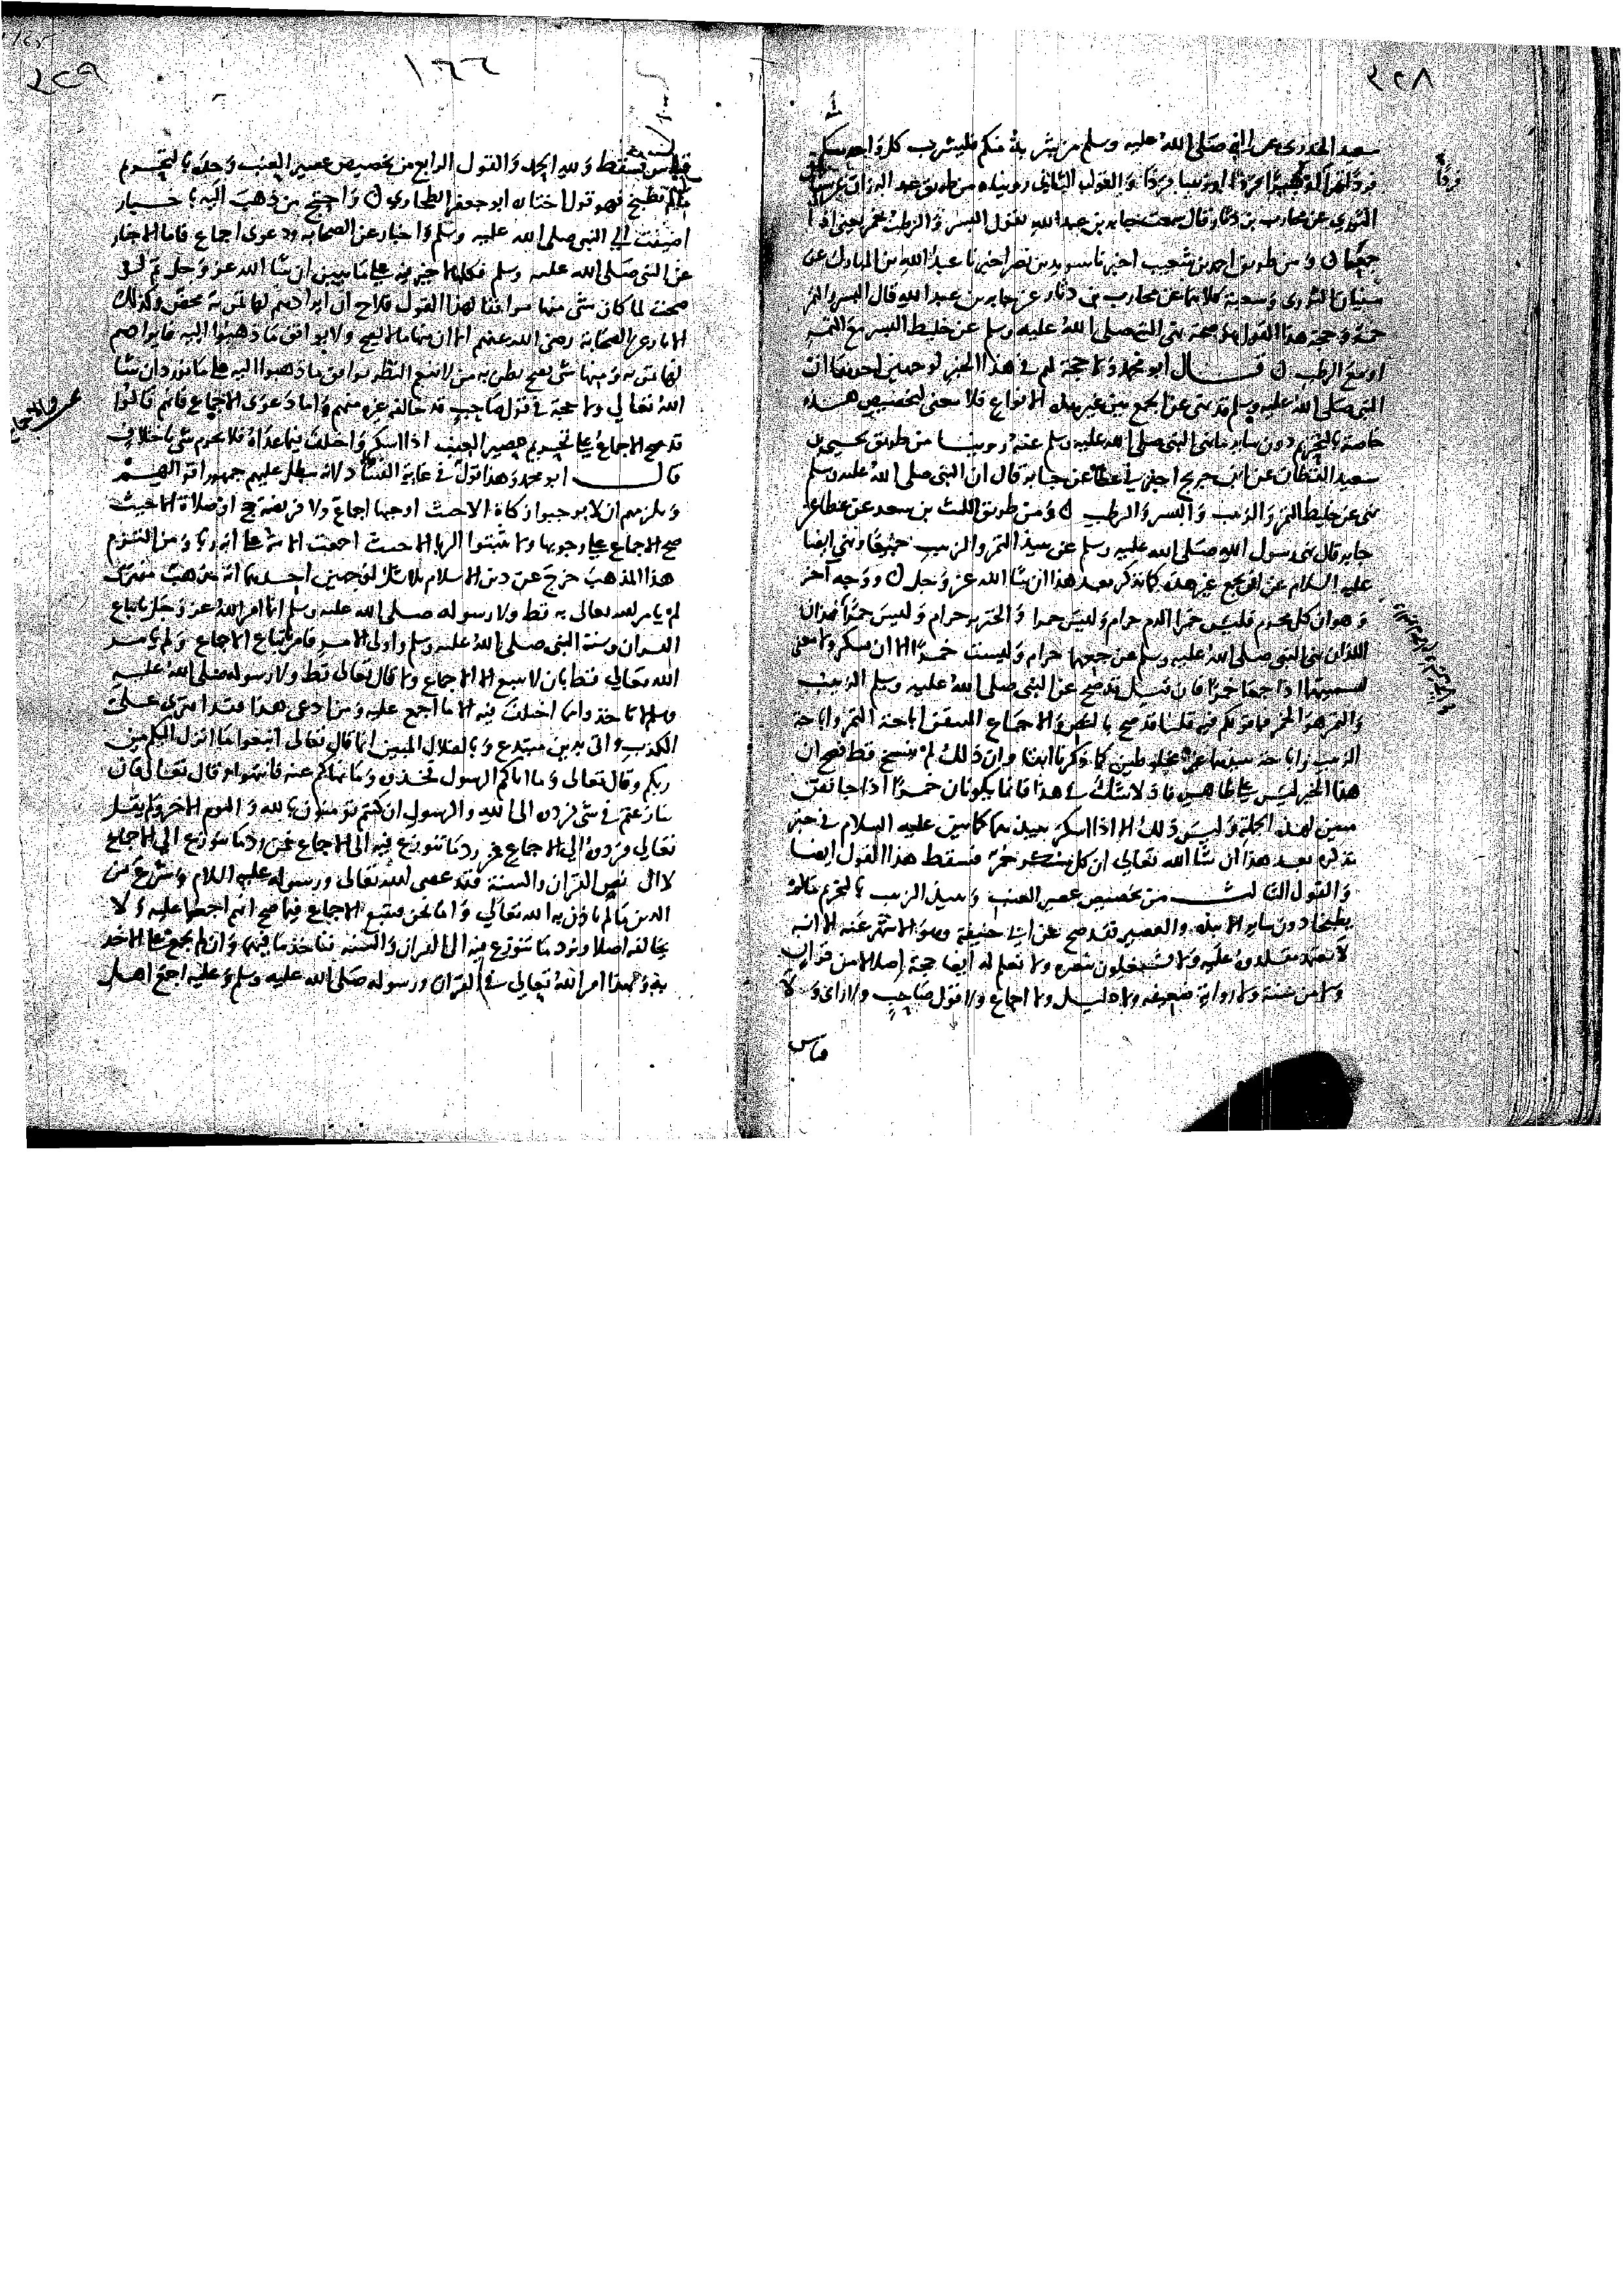 ٢٢٨
سعيد الخدري عن النبي صلى الله عليه وسلم من شربه منكم فليشرب كل واحد منه
فردا
فردا تمرا فردا او بسرا فردا او زبيبا فردا والقول الثاني رويناه من طريق عبد الرزاق عن سفيان
الثوري عن محارب بن دثار قال سمعت جابر بن عبد الله يقول البسر والرطب خمر يعني اذا
جمعا ومن طريق احمد بن شعيب اخبرنا سويد بن نصر اخبرنا عبد الله بن المبارك عن
سفيان الثوري وشعبة كلاهما عن محارب بن دثار عن جابر بن عبد الله قال البسر والتمر
خمر وحجة هذا القول صحة نهي النبي صلى الله عليه وسلم عن خليط البسر مع التمر
او مع الرطب قال ابو محمد ولا حجة لهم في هذا الخبر لوجهين احدهما ان
النبي صلى الله عليه وسلم قد نهى عن الجمع بين غير هذه الانواع فلا معنى لتخصيص هذه
خاصة بالتحريم دون سائر ما نهى النبي صلى الله عليه وسلم عنه روينا من طريق يحيى بن
سعيد القطان عن ابن جريج اخبرني عطا عن جابر قال ان النبي صلى الله عليه وسلم
نهى عن خليط التمر والزبيب والبسر والرطب ومن طريق الليث بن سعد عن عطا عن
جابر قال نهى رسول الله صلى الله عليه وسلم عن نبيذ التمر والزبيب جميعا ونهى ايضا
عليه السلام عن ان يجمع غير هذه كما نذكر بعد هذا ان شا الله عز وجل ووجه آخر
وهو ان كل محرم فليس خمرا الدم حرام وليس خمرا والخنزير حرام وليس خمرا فهذان
اللذان نهى النبي صلى الله عليه وسلم عن جمعهما حرام وليست خمرا الا ان تسكر ولا معنى
لتسميتهما اذا جمعا خمرا فان قيل قد صح عن النبي صلى الله عليه وسلم الزبيب
والتمر هو الخمر فما قولكم فيه قلنا قد صح بالنص والاجماع المتيقن اباحة التمر واباحة
الزبيب واباحة نبيذهما غير مخلوطين كما ذكرنا انفا وان ذلك لم ينسخ قط فصح ان
هذا الخبر ليس على ظاهره فاذ لا شك في هذا فانما يكونان خمرا اذا جا نص
مبين لهذه الجملة وليس ذلك الا اذا اسكر نبيذهما كما بين عليه السلام في خبر
نذكره بعد هذا ان شا الله تعالى ان كل مسكر خمر فسقط هذا القول ايضا
والقول الثالث من تخصيص عصير العنب ونبيذ الزبيب بالتحريم مالم
يطبخا دون سائر الانبذة والعصير فقد صح عن ابي حنيفة وهو الاشهر عنه الا انه
لا يعتمد مقلدوه عليه ولا يشتغلون بنصره ولا نعلم له ايضا حجة اصلا لا من قرآن
ولا من سنة ولا رواية ضعيفة ولا دليل ولا اجماع ولا قول صاحب ولا راي ولا
قياس
٢٢٩
١٢٢
قياس فسقط ولله الحمد والقول الرابع من تخصيص عصير العنب وحده بالتحريم
ما لم يطبخ فهو قول اختاره ابو جعفر الطحاوي واحتج من ذهب اليه باخبار
اضيفت الى النبي صلى الله عليه وسلم واخبار عن الصحابة ودعوى اجماع فاما الاخبار
عن النبي صلى الله عليه وسلم فكلها لا خير فيه على ما نبين ان شا الله عز وجل ثم لو
صحت لما كان شي منها موافقا لهذا القول فلاح ان ايرادهم لها تمويه محض وكذلك
الاثار عن الصحابة رضي الله عنهم الا ان منها ما لا يصح ولا يوافق ما ذهبوا اليه فايرادهم
لها تمويه ومنها شي يصح يظن به من لا ينعم النظر يوافق ما ذهبوا اليه على ما نورد ان شا
الله تعالى ولا حجة في قول صاحب قد خالفه غيره منهم واما دعوى الاجماع فانهم قالوا
قد صح الاجماع على تحريم عصير العنب اذا اسكر واختلف فيما عداه فلا يحرم شي باختلاف
قال ابو محمد وهذا قول في غاية الفساد لانه يبطل عليهم جمهور اقوالهم
ويلزمهم ان لا يوجبوا زكاة الا حيث اوجبها اجماع ولا فريضة حج او صلاة الا حيث
صح الاجماع على وجوبها ولا يثبتوا الربا الا حيث اجمعت الامة على انه ربا ومن التزم
هذا المذهب خرج عن دين الاسلام بلا شك لوجهين احدهما انه مذهب مفترى
لم يامر الله تعالى به قط ولا رسوله صلى الله عليه وسلم انما امر الله عز وجل باتباع
القرآن وسنة النبي صلى الله عليه وسلم واولي الامر فامر باتباع الاجماع ولم يامر
الله تعالى قط بان لا يتبع الا الاجماع ولا قال تعالى قط ولا رسوله صلى الله عليه
وسلم لا تاخذوا مما اختلف فيه الا ما اجمع عليه ومن ادعى هذا فقد افترى على الله
الكذب واتى بدين مبتدع وبالضلال المبين انما قال تعالى اتبعوا ما انزل اليكم من
ربكم وقال تعالى وما اتاكم الرسول فخذوه وما نهاكم عنه فانتهوا وقال تعالى فان
تنازعتم في شي فردوه الى الله والرسول ان كنتم تومنون بالله واليوم الاخر ولم يقل
تعالى فردوه الى الاجماع فمن رد ما تنوزع فيه الى الاجماع
لا الى نص القرآن والسنة فقد عصى الله تعالى ورسوله عليه السلام وشرع من
الدين ما لم ياذن به الله تعالى واما نحن فنتبع الاجماع فيما صح انهم اجمعوا عليه ولا
نخالفه اصلا ونرد ما تنوزع فيه الى القرآن والسنة فناخذ ما فيهما وان لم يجمع على الاخذ
به وبهذا امر الله تعالى في القرآن ورسوله صلى الله عليه وسلم وعليه اجمع اهل